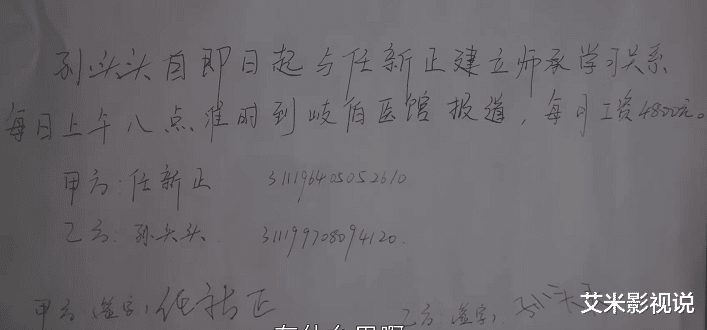 孙头头自即日起与任新正建立师承学习关系
每日上午八点准时到岐伯医馆报道，每月工资4800元。
甲方：任新正 311196405052610
乙方：孙头头 311199708094120.
甲方签字：任新正
乙方签字：孙头
艾米影视说